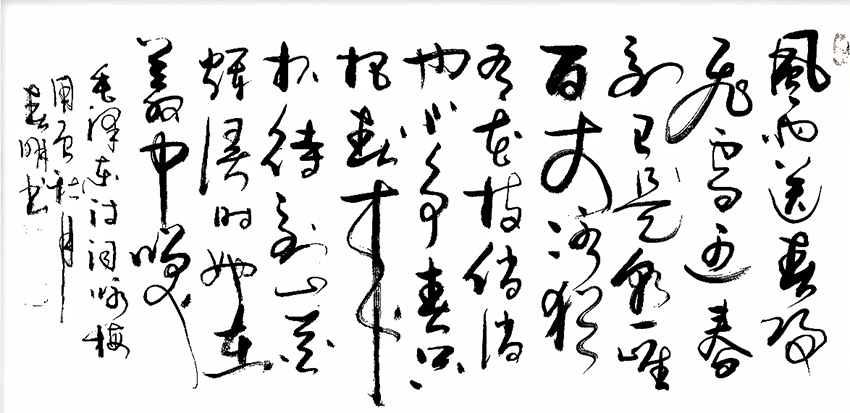 風雨送春歸
飛雪迎春
到已是懸崖
百丈冰猶
有花枝俏俏
也不爭春只
把春來
報待到山花
爛漫時她在
叢中笑
毛澤東詩詞詠梅
秋月
春明書